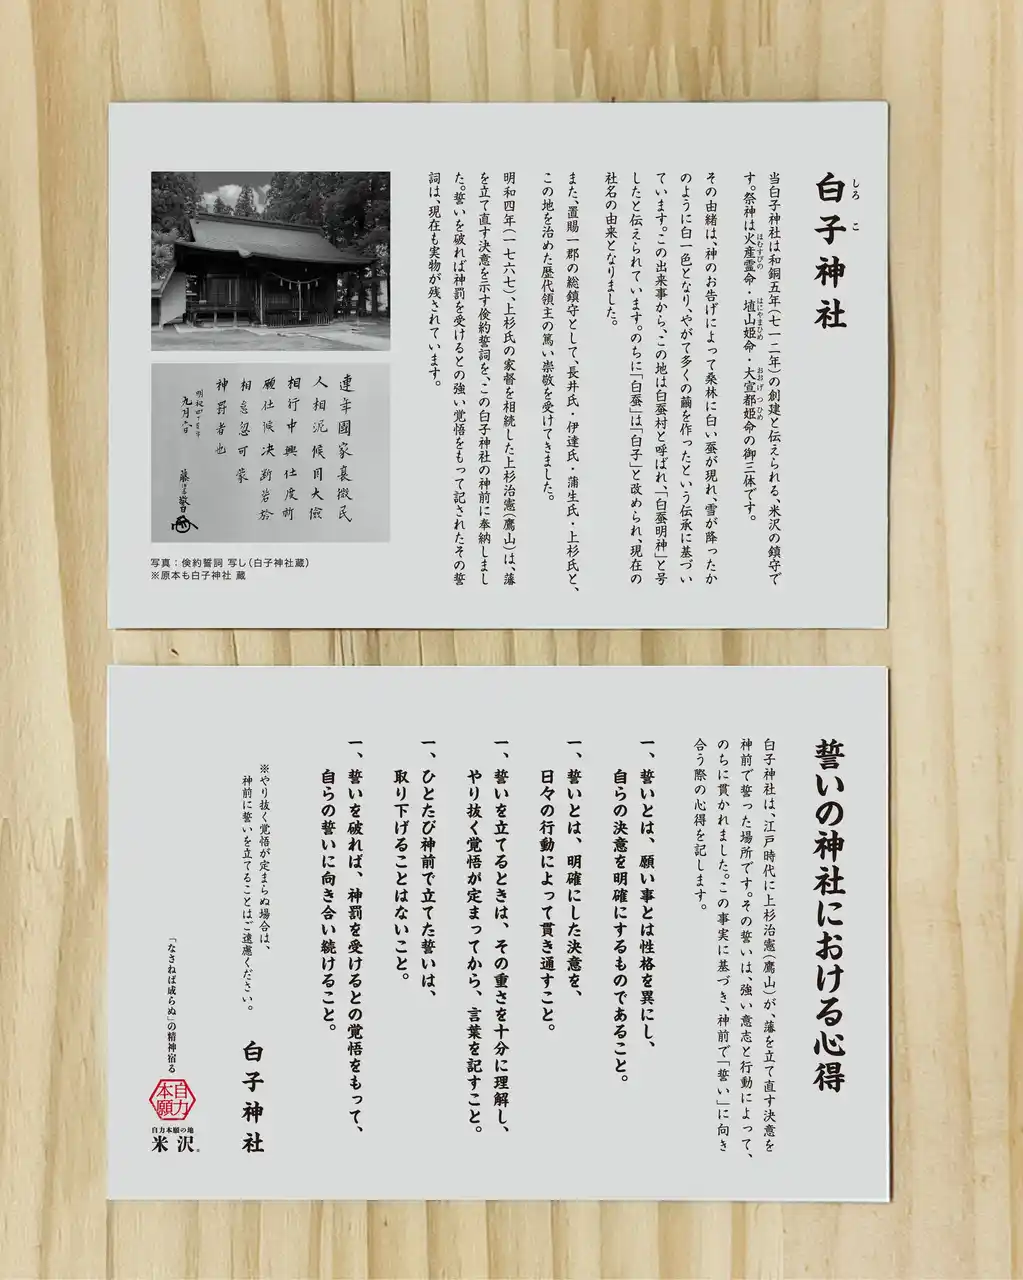 白子神社
しろこ
当白子神社は和銅五年(七一二年)の創建と伝えられる、米沢の鎮守で
す。祭神は火産霊命・埴山姫命・大宣都姫命の御三体です。
はむすびの はにやまひめ おおげつひめ
その由緒は、神のお告げによって桑林に白い蚕が現れ、雪が降ったか
のように白一色となり、やがて多くの繭を作ったという伝承に基づい
ています。この出来事から、この地は白蚕村と呼ばれ、「白蚕明神」と号
したと伝えられています。のちに「白蚕」は「白子」と改められ、現在の
社名の由来となりました。
また、置賜一郡の総鎮守として、長井氏・伊達氏・蒲生氏・上杉氏と、
この地を治めた歴代領主の篤い崇敬を受けてきました。
明和四年(一七六七)、上杉氏の家督を相続した上杉治憲(鷹山)は、藩
を立て直す決意を示す倹約誓詞を、この白子神社の神前に奉納しまし
た。誓いを破れば神罰を受けるとの強い覚悟をもって記されたその誓
詞は、現在も実物が残されています。
連年國家衰微民
人相泥候目大倹
相行中興仕度祈
願仕候決断若於
相怠忽可蒙
神罰者也
九月六日
写真：倹約誓詞 写し(白子神社蔵)
※原本も白子神社 蔵
誓いの神社における心得
白子神社は、江戸時代に上杉治憲(鷹山)が、藩を立て直す決意を
神前で誓った場所です。その誓いは、強い意志と行動によって、
のちに貫かれました。この事実に基づき、神前で「誓い」に向き
合う際の心得を記します。
一、誓いとは、願い事とは性格を異にし、
自らの決意を明確にするものであること。
一、誓いとは、明確にした決意を、
日々の行動によって貫き通すこと。
一、誓いを立てるときは、その重さを十分に理解し、
やり抜く覚悟が定まってから、言葉を記すこと。
一、ひとたび神前で立てた誓いは、
取り下げることはないこと。
一、誓いを破れば、神罰を受けるとの覚悟をもって、
自らの誓いに向き合い続けること。
※やり抜く覚悟が定まらぬ場合は、
神前に誓いを立てることはご遠慮ください。
白子神社
「なさねば成らぬ」の精神宿る
自力本願
自力本願の地
米沢